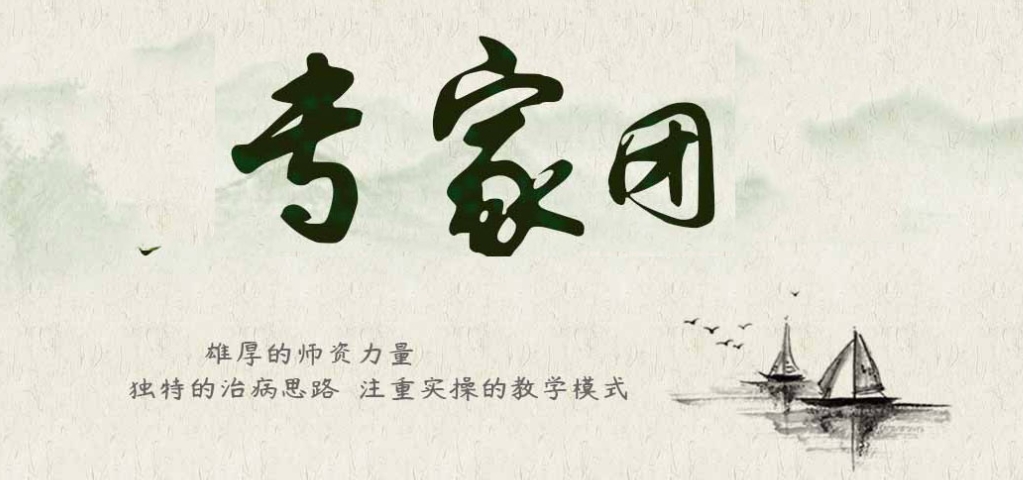 专家团
雄厚的师资力量
独特的治病思路 注重实操的教学模式